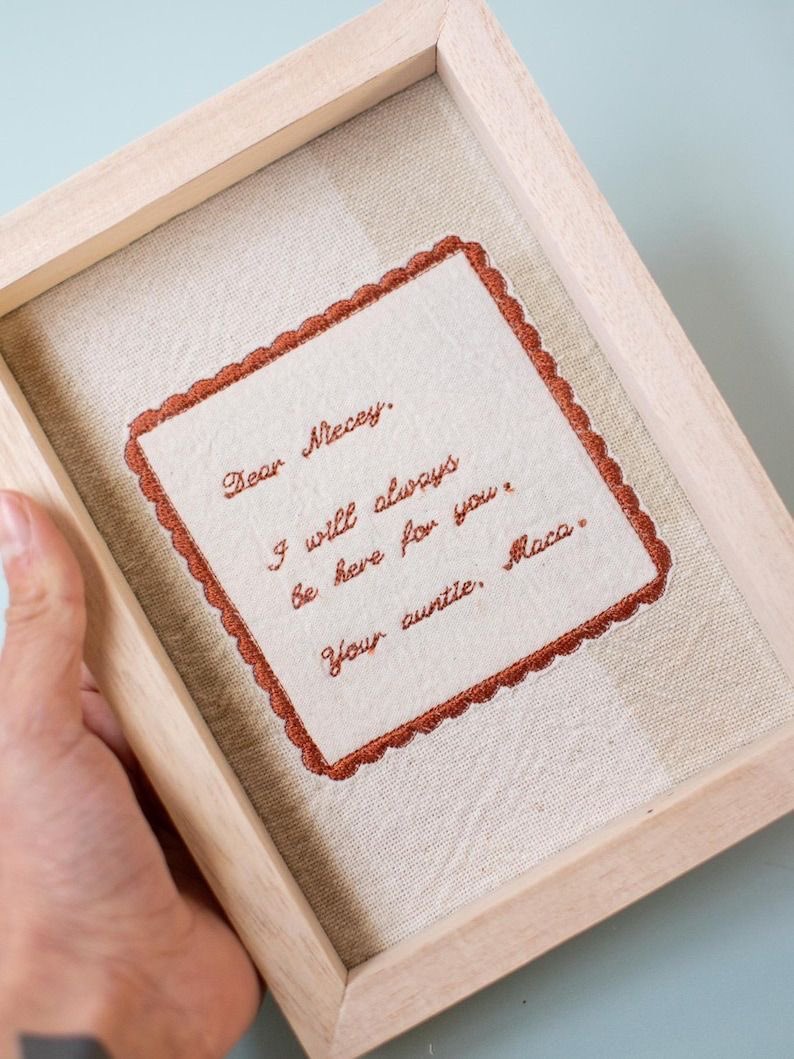 Dear Mecey,
I will always
be here for you.
Your auntie, Maca.